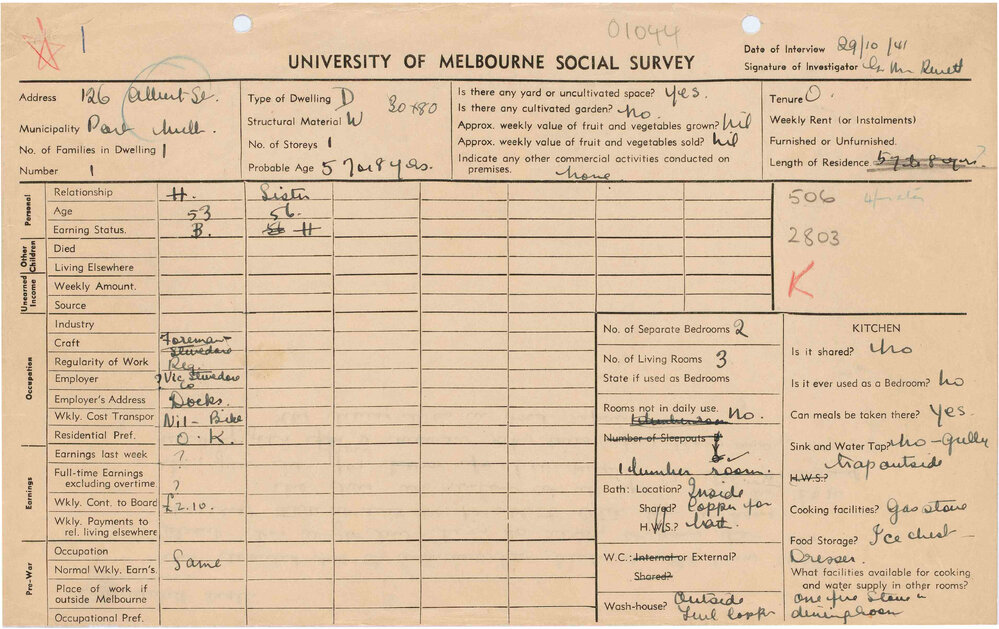 1
01044
UNIVERSITY OF MELBOURNE SOCIAL SURVEY
Date of Interview 29/10/41
Signature of Investigator
Address 126 Albert St.
Municipality Port Melb.
No. of Families in Dwelling 1
Number 1
Type of Dwelling D 80
Structural Material W
No. of Storeys 1
Probable Age 5 7 or 8 yrs.
Is there any yard or uncultivated space? yes.
Is there any cultivated garden? no.
Approx. weekly value of fruit and vegetables grown? nil
Approx. weekly value of fruit and vegetables sold? nil
Indicate any other commercial activities conducted on
premises. none
Tenure O.
Weekly Rent (or Instalments)
Furnished or Unfurnished.
Length of Residence ?
Personal
Relationship H. Sister
Age 53 56.
Earning Status. B. H
506
2803
K
Other Children
Died
Living Elsewhere
Unearned Income
Weekly Amount.
Source
Occupation
Industry
Craft Foreman Stevedore
Regularity of Work Reg.
Employer ? Vic Stevedore Co
Employer's Address Docks.
Wkly. Cost Transpor Nil - Bike
Residential Pref. O.K.
Earnings
Earnings last week ?
Full-time Earnings
excluding overtime ?
Wkly. Cont. to Board £2.10.
Wkly. Payments to
rel. living elsewhere
Pre-War
Occupation Same
Normal Wkly. Earn's
Place of work if
outside Melbourne
Occupational Pref.
No. of Separate Bedrooms 2
No. of Living Rooms 3
State if used as Bedrooms
Rooms not in daily use. No.
Number of Sleepouts
1 lumber room.
Bath: Location? Inside
Shared? Copper for
H.W.S.? bath.
W.C.: Internal or External?
Shared?
Wash-house? Outside
Fuel Copper
KITCHEN
Is it shared? No
Is it ever used as a Bedroom? No
Can meals be taken there? Yes.
Sink and Water Tap? No - gully
trap outside
H.W.S.?
Cooking facilities? Gas stove
Food Storage? Ice chest -
Dresser.
What facilities available for cooking
and water supply in other rooms?
One fire Stove in
dining room